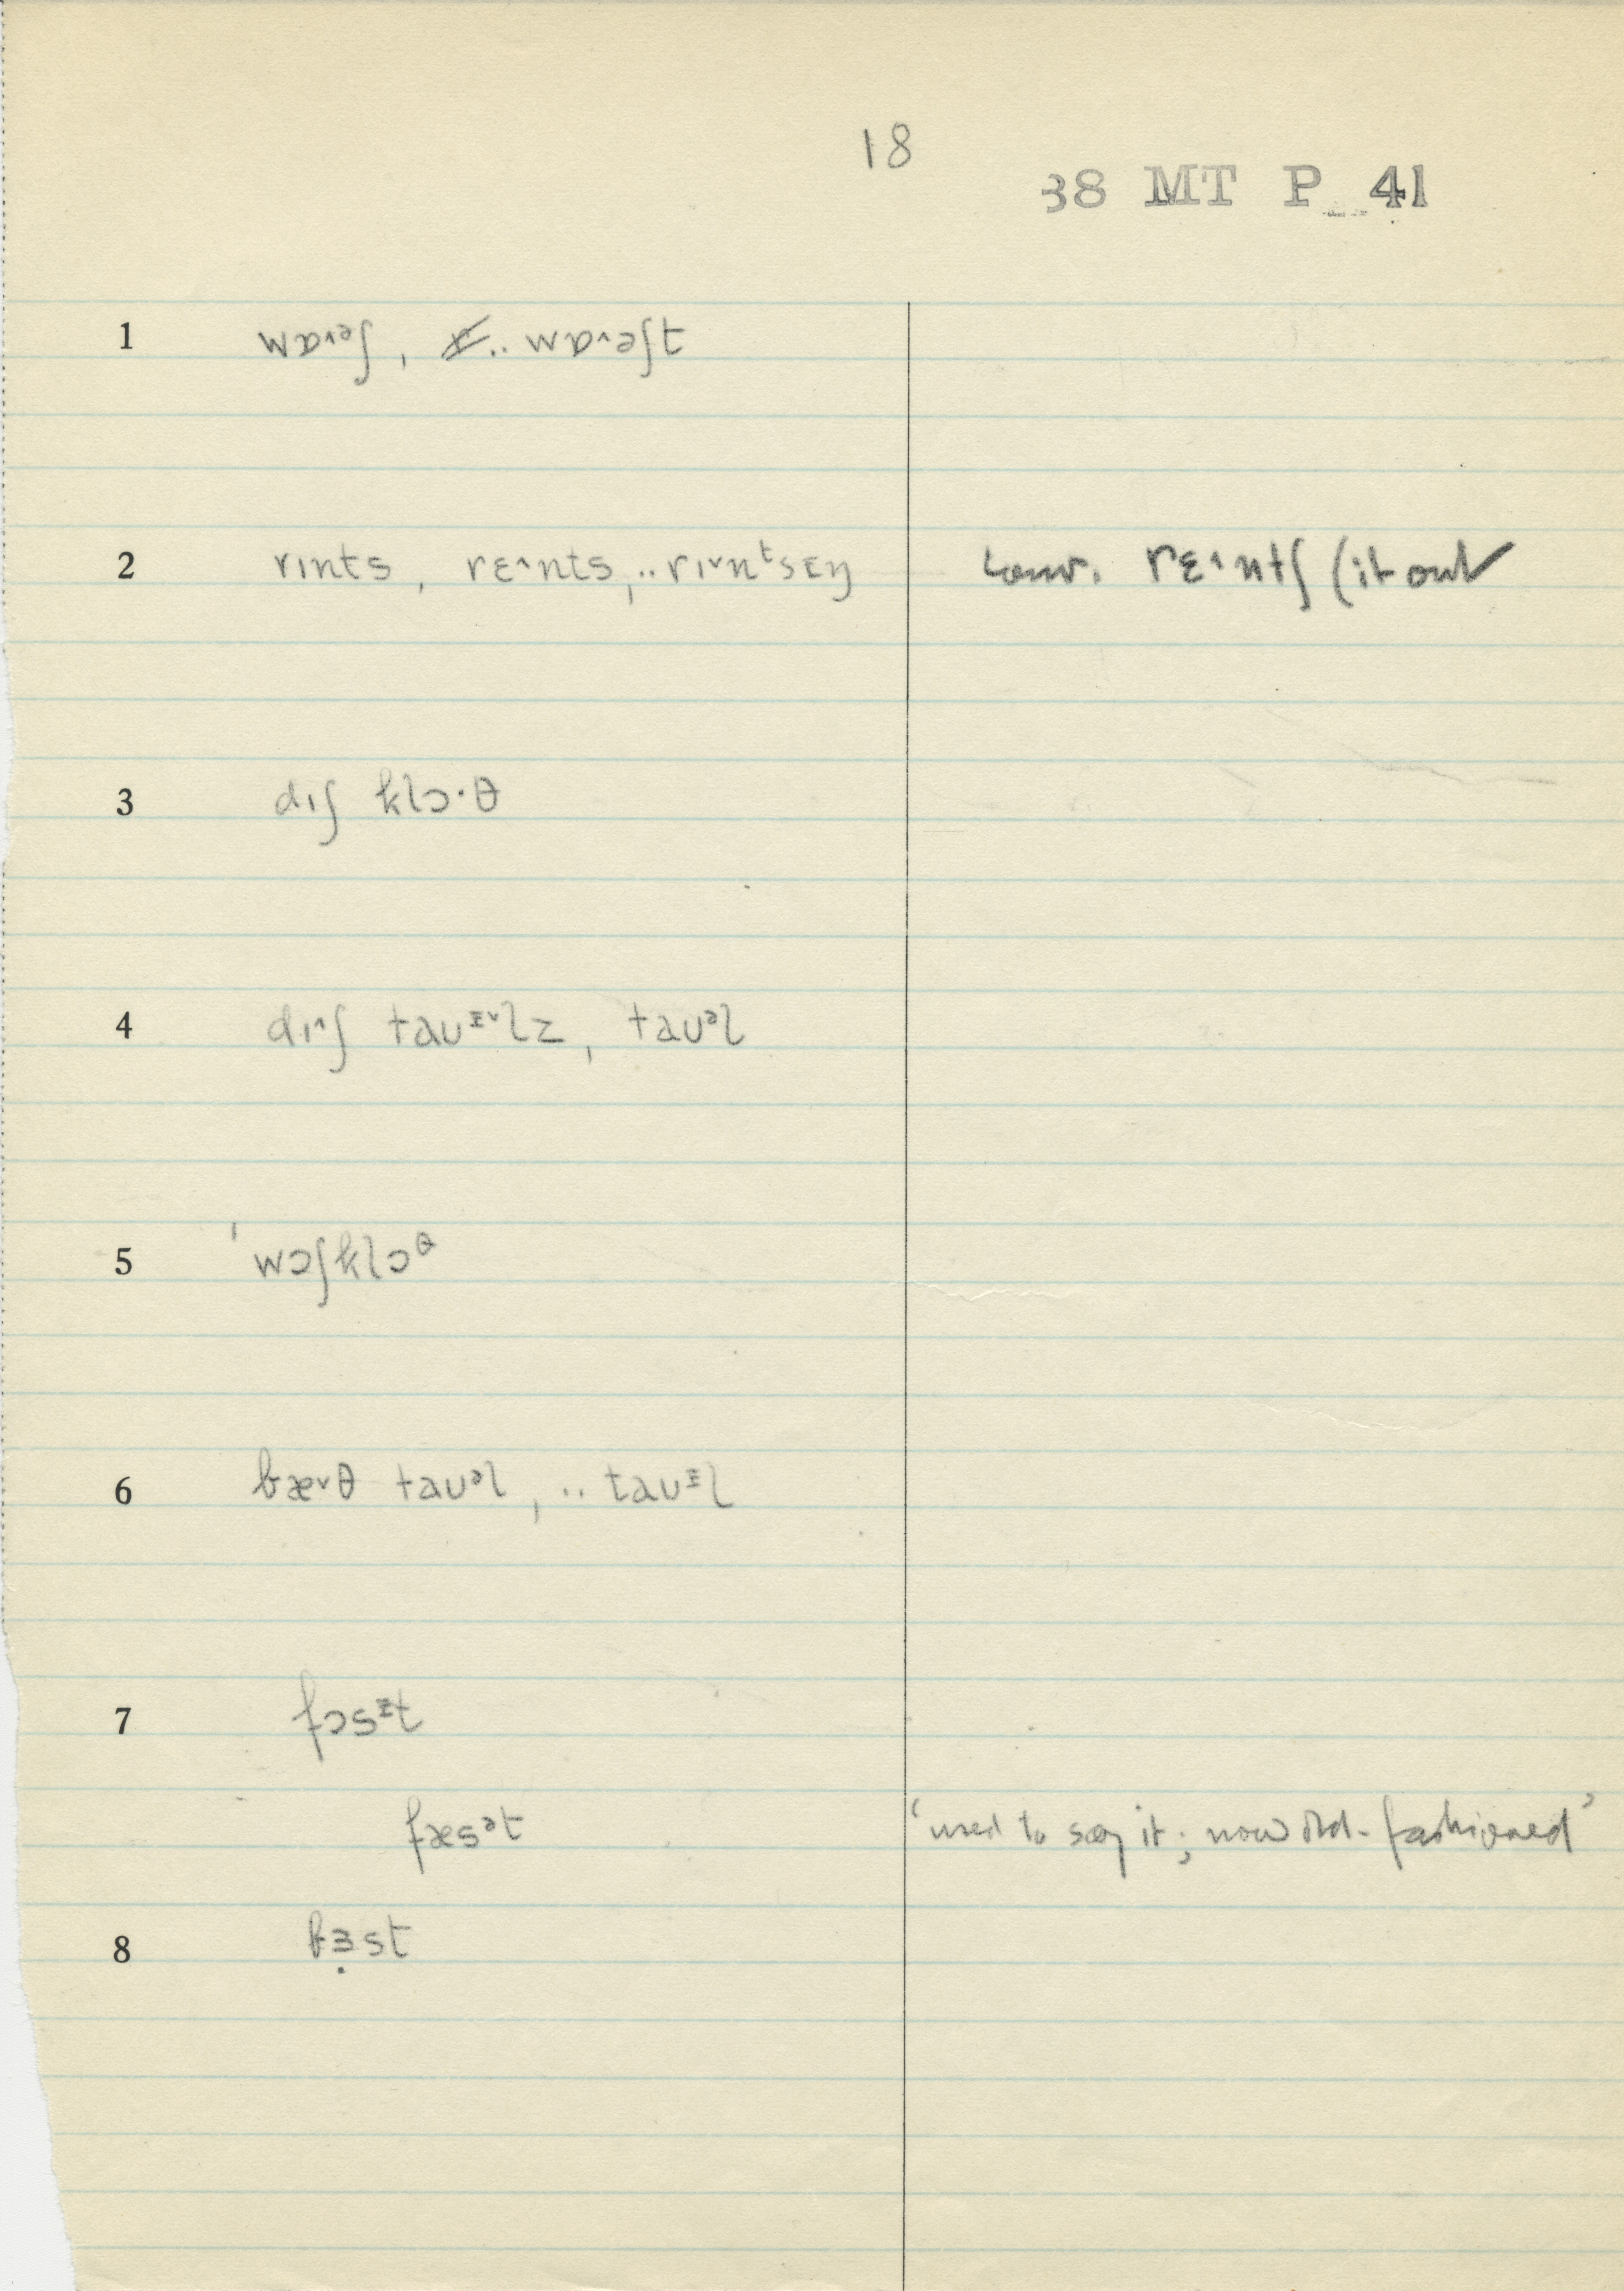 18
38 MT P 41
1 wɒ˄ᵊʃ, .. wɒ˄əʃt
2 rɪnts, rɛ˄nts, .. rɪ˅nᵗsɪŋ conv. rɛ˄ntʃ (it out
3 dɪʃ klɔ·θ
4 dɪ˄ʃ taʊᵻ˅lz, taʊᵊl
5 ˈwɔʃklɔᶿ
6 bæ˅θ taʊᵊl, .. taʊᵻl
7 fɔsᵻt
fæsᵊt ‘used to say it; now old-fashioned’
8 bɜ̣st